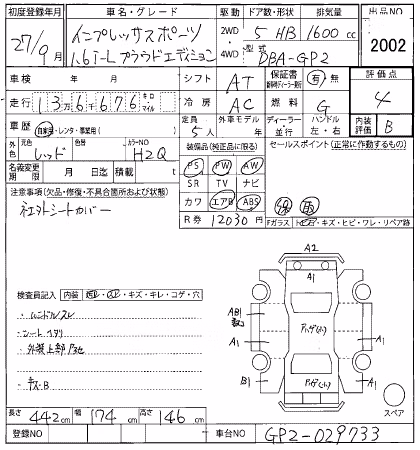 初度登録年月 車名・グレード 駆動 ドア数・形状 排気量 出品NO
27/9月 インプレッサスポーツ 2WD 5 HB 1600 cc
1.6i-L プラウドエディション 4WD 型式 DBA-GP2 2002
車検 年 月 シフト AT 保証書 有 無 評価点
走行 13万6千676 キロ マイル 冷房 AC 燃料 G 4
車歴 自家用・レンタ・事業用( ) 定員 5人 外車モデル年 ディーラー 並行 ハンドル 左・右 内装評価 B
外色 元色 レッド カラーNO H2Q 装備品(純正品に限る) セールスポイント(正常に作動するもの)
名義変更期限 月 日迄 積載 t PS PW AW
注意事項(欠品・修復・不具合箇所および状態) SR TV ナビ
社外シートカバー カワ エアB ABS
R券 12030円 Fガラス トビ石・キズ・ヒビ・ワレ・リペア跡
検査員記入 内装 ・キズ・キレ・コゲ・穴
・ハンドルスレ
・シート
・外装上部
・キズ・B
A2
A1
A1
A1
B1
A1
スペア
長さ 442cm 幅 174cm 高さ 146cm
登録NO 車台NO GP2-029733